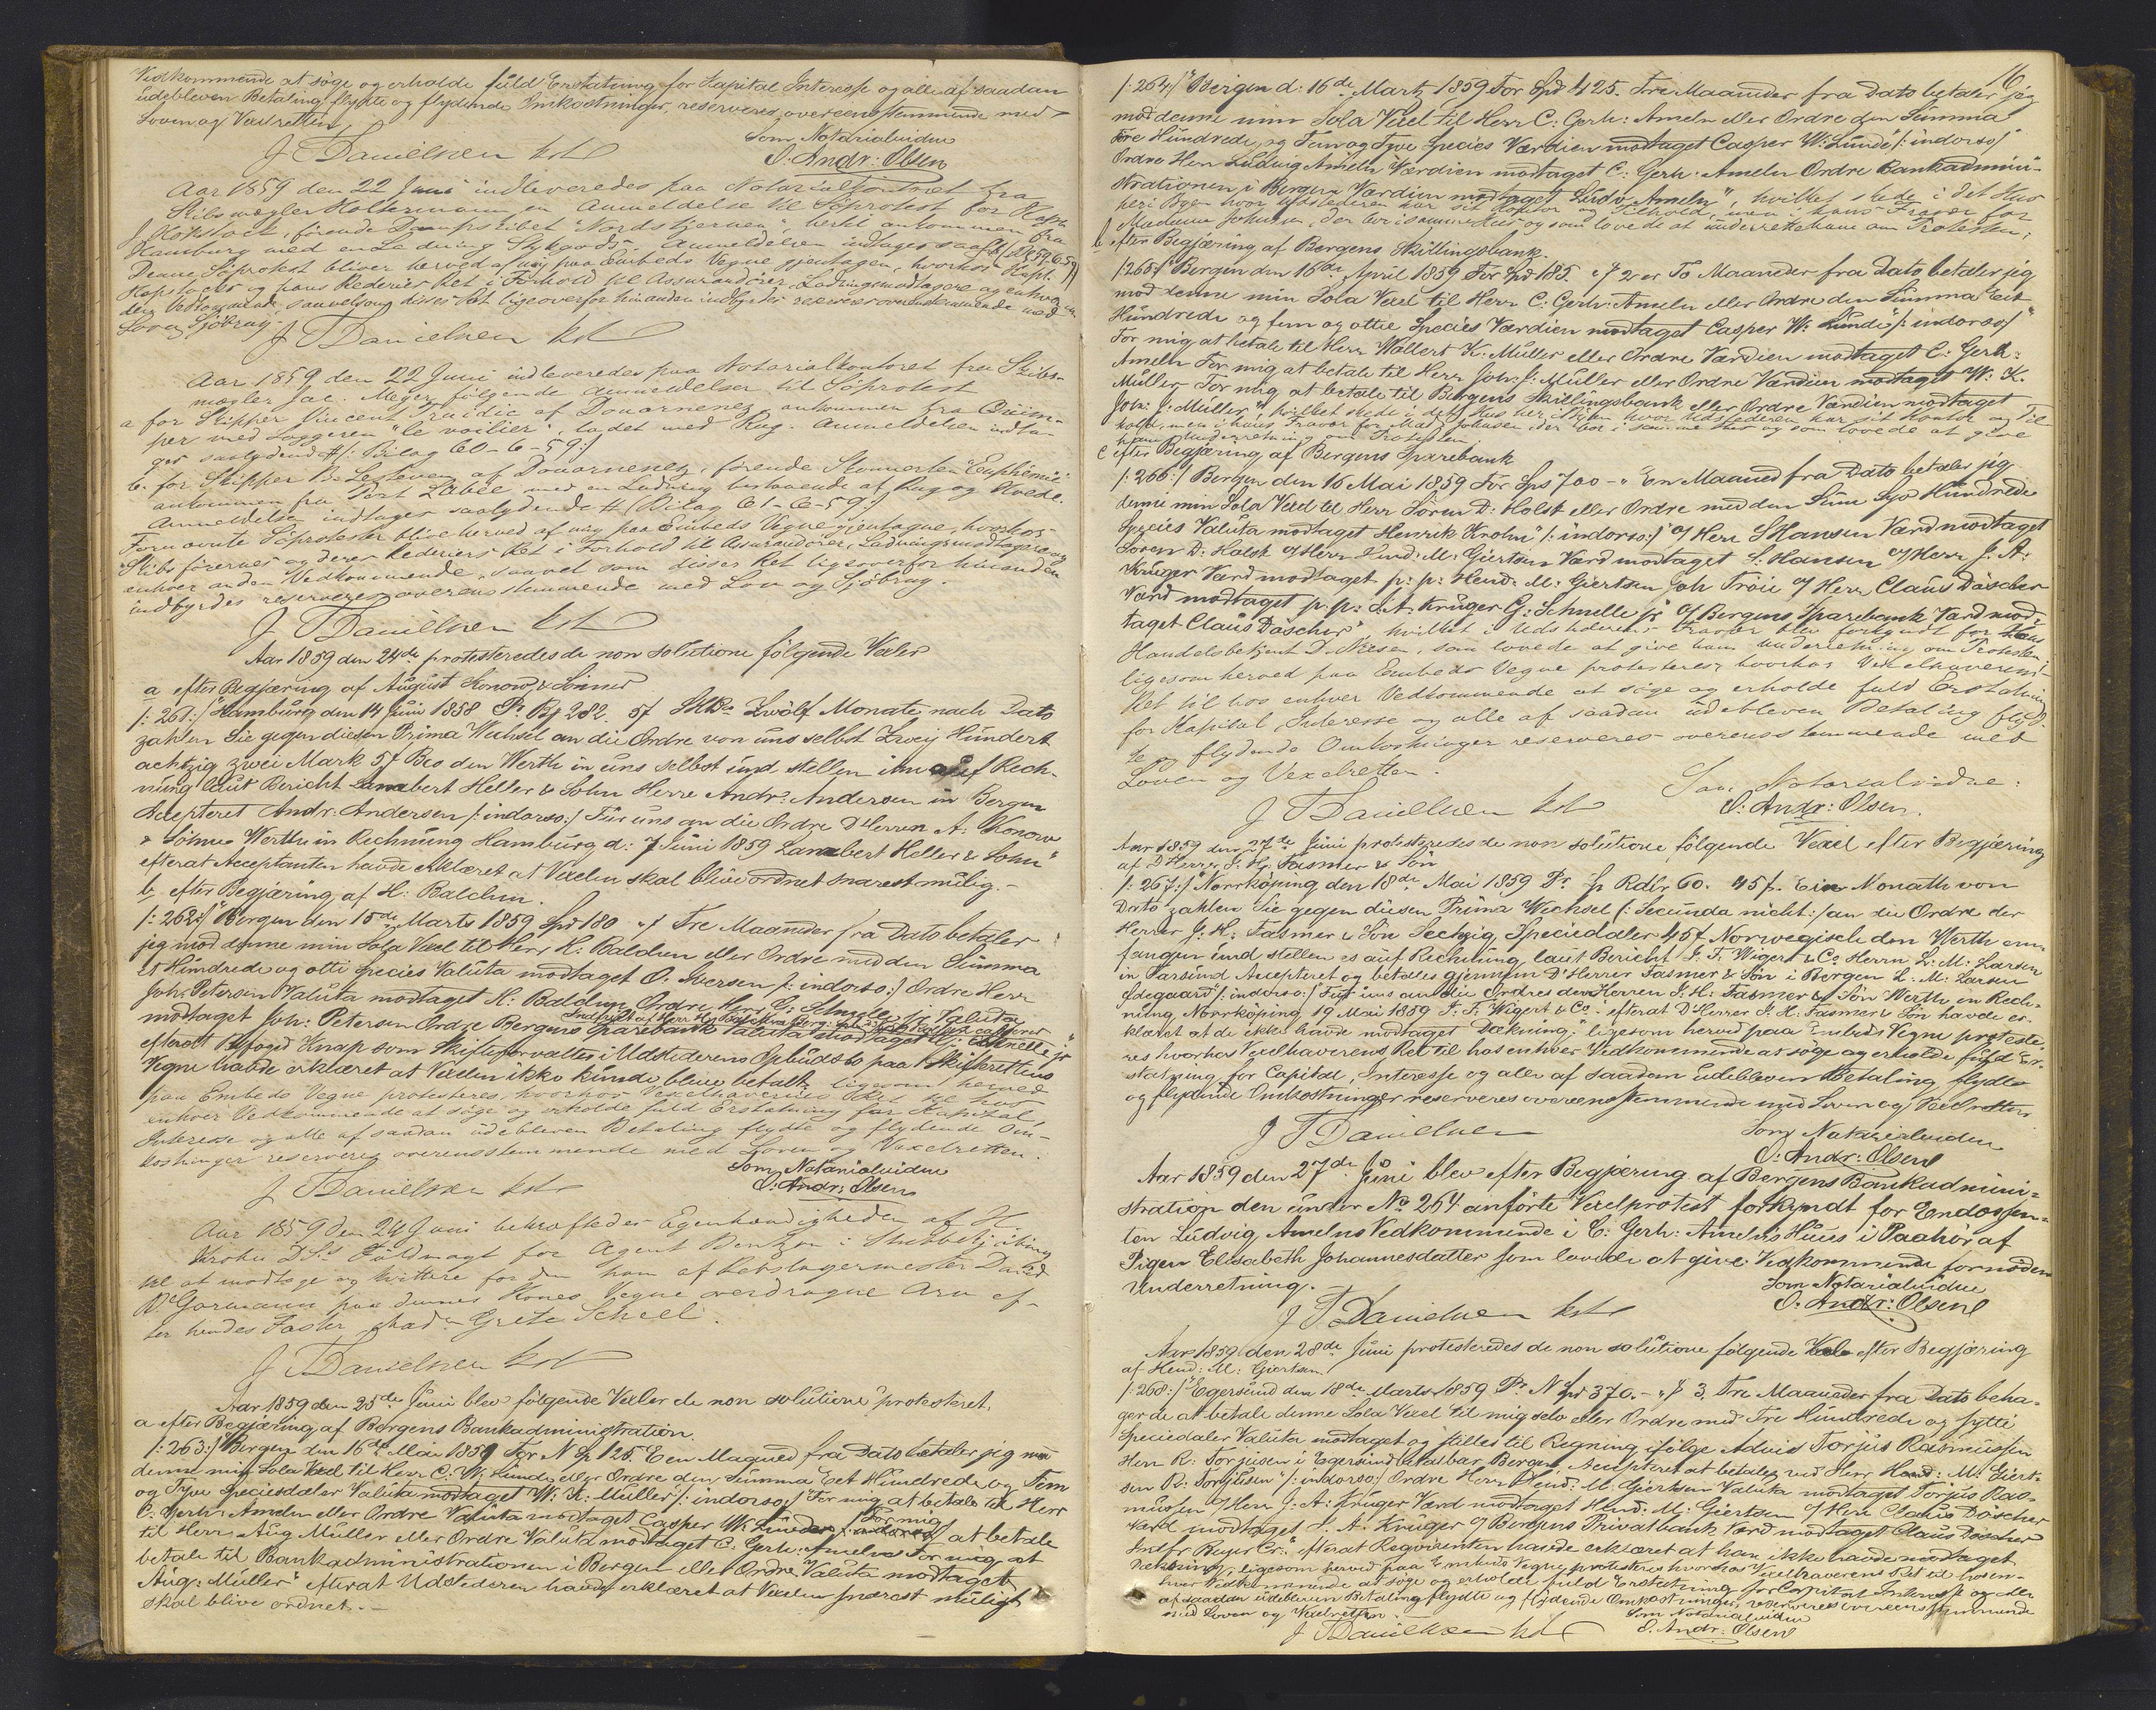 Vedkommende at søge og erholde fuld Erstatning for Kapital Interesse og alle af saadan
udebleven Betaling flydte og flydende Omkostninger, reserveres overeensstemmende med
Loven og Vexelretten
Som Notarialvidne
J T Danielsen kst O. Andr: Olsen
Aar 1859 den 22 Juni indleveredes paa Notarialkontoret fra
Skibsmægler Holtermann en Anmeldelse til Søprotest for Kapt.
J. Hopstock, førende Dampskibet "Nordstjernen", hertil ankommen fra
Hamburg med en Ladning Stykgods. Anmeldelsen indtages saal. # (Bilag 59-6-59)
Denne Søprotest bliver herved af mig paa Embeds Vegne gjentagen, hvorhos Kapt.
Hopstocks og hans Rederies Ret i Forhold til Assurandører, Ladningsmodtagere og enhver an-
den Vedkommende saavelsom disses Ret ligeoverfor hinanden indbyrdes reserveres overensstemmende med
Lov og Sjøbrug.
J T Danielsen kst
Aar 1859 den 22 Juni indleveredes paa Notarialkontoret fra Skibs-
mægler Jac. Meyer følgende Anmeldelser til Søprotest
a for Skipper Vincent Fraidic af Douarnenez, ankommen fra Quim-
per med Loggeren "le voilier", ladet med Rug. Anmeldelsen indta-
ges saalydende # /: Bilag 60-6-59 :/
b. for Skipper af Douarnenez, førende Skonnerten "Euphémie"
ankommen fra Port L'abée med en Ladning bestaaende af Rug og Hvede.
Anmeldelsen indtages saalydende # (Bilag 61-6-59:)
Fornævnte Søprotester blive herved af mig paa Embeds Vegne gjentagne, hvorhos
Skibsførernes og deres Rederiers Ret i Forhold til Assurandører, Ladningsmodtagere og
enhver anden Vedkommende, saavel som disses Ret ligeoverfor hinanden
indbyrdes reserveres overensstemmende med Lov og Sjøbrug.
J T Danielsen kst
Aar 1859 den 24de protesteredes de non solutione følgende Vexler
a efter Begjæring af August Konow & Sønner
/: 261:/ "Hamburg den 14 Juni 1858 Pr. Bf 282. 5f Zwölf Monate nach Dato
zahlen Sie gegen diesen Prima Wechsel an die Ordre von uns selbst Zwey Hundert
achtzig zwei Mark 5f Bco den Werth in uns selbst und stellen ihn auf Rech-
nung laut Bericht Lambert Heller & Sohn Herrn Andr: Andersen in Bergen
Accepteret Andr: Andersen /: indorso:/ Für uns an die Ordre D'Herren A: Konow
& Sønner Werth in Rechnung Hamburg d: 7 Juni 1859 Lambert Heller & Sohn"
efterat Acceptanten havde erklæret at Vexelen skal blive ordnet snarest mulig.-
b efter Begjæring af H: Balchen.
/: 262:/ "Bergen den 15de Marts 1859 Spd 180 "f Tre Maaneder fra Dato betaler
jeg mod denne min Sola Vexel til Herr H: Balchen eller Ordre med den Summa
et Hundrede og otti species Valuta modtaget O. Iversen /: indorso:/ Ordre Herr
Joh: Petersen Valuta modtaget H: Balchen Ordre Herr G: Schnelle jr Valuta
modtaget Joh: Petersen Ordre Bergens Sparebank Valuta modtaget G: Schnelle jr"
efterat Byfoged Knap som Skifteforvalter i Udstederens Opbudsbo paa Skifterettens
Vegne havde erklæret at Vexelen ikke kunde blive betalt, ligesom herved
paa Embeds Vegne protesteres, hvorhos Vexelhaverens Ret til hos
enhver Vedkommende at søge og erholde fuld Erstatning for Kapital
Interesse og alle af saadan udebleven Betaling flydte og flydende Om-
kostninger reserveres overensstemmende med Loven og Vexelretten.
Som Notarialvidne
J T Danielsen kst O. Andr: Olsen
Aar 1859 den 24 Juni bekræftedes Egenhændigheden af H.
Krohn D.S's Fuldmagt for Agent Bentzen i Stubbekjøbing
til at modtage og kvittere for den ham af Rebslagermester David
Gormann paa dennes Kones Vegne overdragne Arv ef-
ter hendes Faster Mad: Grete Scheel.
J T Danielsen kst
Aar 1859 den 25de Juni blev følgende Vexler de non solutione protesteret.
a efter Begjæring af Bergens Bankadministration.
/: 263:/ "Bergen den 16de Mai 1859 For N Sp 125. Een Maaned fra Dato betaler jeg mod
denne min Sola Vexel til Herr C. W. Lunde eller Ordre den Summa Eet Hundrede og Fem
og Tyve Speciesdaler Valuta modtaget W: K: Müller /: indorso:/ For mig at betale til Herr
C: Gerh: Ameln eller Ordre Valuta modtaget Casper W: Lunde For mig at betale
til Herr Aug Müller eller Ordre Valuta modtaget C: Gerh: Ameln For mig at
betale til Bankadministrationen i Bergen eller Ordre Valuta modtaget
Aug: Müller" efterat Udstederen havde erklæret at Vexelen snarest muligt
skal blive ordnet.-
16
/: 264:/ "Bergen d: 16de Marts 1859 For Spd 425. Tre Maaneder fra Dato betaler jeg
mod denne min Sola Vexel til Herr C: Gerh: Ameln eller Ordre den Summa
Fire Hundrede og Fem og Tyve Species Værdien modtaget Casper W: Lunde" /: indorso:/
Ordre Herr Ludvig Ameln Værdien modtaget C: Gerh: Ameln Ordre Bankadmini-
strationen i Bergen Værdien modtaget Ludv: Ameln", hvilket skede i det Huus
her i Byen hvor Udstederen har sit Kontor og Tilhold, men i hans Fravær for
Madame Johnsen, der bor i samme Hus og som lovede at underrette ham om Protesten;
b efter Begjæring af Bergens Skillingsbank.
/: 265:/ "Bergen den 16de April 1859 For Spd 185. "f 2 er To Maaneder fra Dato betaler jeg
mod denne min Sola Vexel til Herr C: Gerh: Ameln eller Ordre den Summa Eet
Hundrede og fem og ottie Species Værdien modtaget Casper W: Lunde" /: indorso:/
For mig at betale til Herr Wollert K. Müller eller Ordre Værdien modtaget C: Gerh:
Ameln For mig at betale til Herr Joh: J: Müller eller Ordre Værdien modtaget W: K.
Müller For mig at betale til Bergens Skillingsbank eller Ordre Værdien modtaget
Joh: J: Müller", hvilket skede i det Hus her i Byen hvor Udstederen har sit Kontor og Til-
hold, men i hans Fravær for Mad: Johnsen, der bor i samme Hus og som lovede at give
ham Underretning om Protesten
c efter Begjæring af Bergens Sparebank
/: 266:/ Bergen den 16 Mai 1859 For Sps 700 -" En Maaned fra Dato betaler jeg
denne min Sola Vexel til Herr Søren D: Holst eller Ordre med den Sum Syv Hundrede
Species Valuta modtaget Henrik Krohn" /: indorso:/ o/ Herr S Hansen Værd modtaget
Søren D: Holst o/ Herr Hend: M: Giertsen Værd modtaget S: Hansen o/ Herr J: A:
Krüger Værd modtaget p: p: Hend: M: Giertsen Joh Troie o/ Herr Claus Däscher
Værd modtaget p. p: J. A. Krüger G: Schnelle jr o/ Bergens Sparebank Værd mod-
taget Claus Däscher", hvilket i Udstederens Fravær blev forkyndt for hans
Handelsbetjent D. Nilsen, som lovede at give ham Underretning om Protesten,
ligesom herved paa Embeds Vegne protesteres, hvorhos Vexelhaverens
Ret til hos enhver Vedkommende at søge og erholde fuld Erstatning
for Kapital, Interesse og alle af saadan udebleven Betaling flyd-
te flydende Omkostninger reserveres overensstemmende med
Loven og Vexelretten.
Som Notarialvidne:
J T Danielsen kst O: Andr: Olsen.
Aar 1859 den 27de Juni protesteredes de non solutione følgende Vexel efter Begjæring
af D'Herrer J. H. Fasmer & Søn
/: 267:/ "Norrköping den 18de Mai 1859 Pr. Sp Rdlr 60. 45f. Ein Monath von
Dato zahlen Sie gegen diesen Prima Wechsel (: Secunda nicht:) an die Ordre der
Herrer J. H. Fasmer & Søn Sechzig Speciedaler 45f Norwegisch den Werth em-
fangen und stellen es auf Rechnung laut Bericht J. F. Wigert & Co Herrn L. M. Larsen
in Farsund Accepteret og betales gjennem D'Herrer Fasmer & Søn i Bergen L. M. Larsen
Ødegaard" /: indorso:/ "Für uns an die Ordres der Herren J. H. Fasmer & Søn Werth in Rech-
nung, Norrköping 19 Mai 1859 J. F. Wigert & Co" efterat D'Herrer J. H. Fasmer & Søn havde er-
klæret at de ikke havde modtaget Dækning. ligesom herved paa Embeds Vegne proteste-
res hvorhos Vexelhaverens Ret til hos enhver Vedkommende at søge og erholde fuld Er-
statning for Capital, Interesse og alle af saadan udebleven Betaling flydte
og flydende Omkostninger reserveres overeensstemmende med Loven og Vexelretten
Som Notarialvidne
J T Danielsen O: Andr: Olsen
Aar 1859 den 27de Juni blev efter Begjæring af Bergens Bankadmini-
stration den under No 264 anførte Vexelprotest forkyndt for Endossen-
ten Ludvig Amelns Vedkommende i C: Gerh: Amelns Huus i Paahør af
Pigen Elisabeth Johannesdatter som lovede at give Vedkommende fornøden
Underretning.-
Som Notarialvidne
J T Danielsen kst O: Andr: Olsen
Aar 1859 den 28de Juni protesteredes de non solutione følgende Vexle efter Begjæring
af Hend: M: Giertsen
/: 268:/ "Egersund den 18de Marts 1859 Pr N Spd 370.- "f 3. Tre Maaneder fra Dato beha-
ger de at betale denne Sola Vexel til mig selv eller Ordre med Tre Hundrede og sytti
Speciedaler Valuta modtaget og stilles til Regning ifølge Advis Torjus Rasmussen
Herr R: Torjusen i Egersund betalbar Bergen Accepteret at betales ved Herr Hend: M: Giert-
sen R: Torjusen" /: indorso:/ Ordre Herr Hend: M: Giertsen Valuta modtaget Torjus Ras-
mussen o/ Herr J: A: Krüger Værd modtaget Hend: M: Giertsen o/ Herr Claus Däscher
Værd modtaget J. A. Krüger o/ Bergens Privatbank Værd modtaget Claus Däscher
efterat Reqvirenten havde erklæret at han ikke havde modtaget
Dækning, ligesom herved paa Embeds Vegne protesteres hvorhos Vexelhaverens Ret til hos en-
hver Vedkommende at søge og erholde fuld Erstatning for Capital Interesse og alle
af saadan udebleven Betaling flydte og flydende Omkostninger reserveres overeensstemmende
med Loven og Vexelretten.
Som Notarialvidne
J T Danielsen kst O. Andr: Olsen